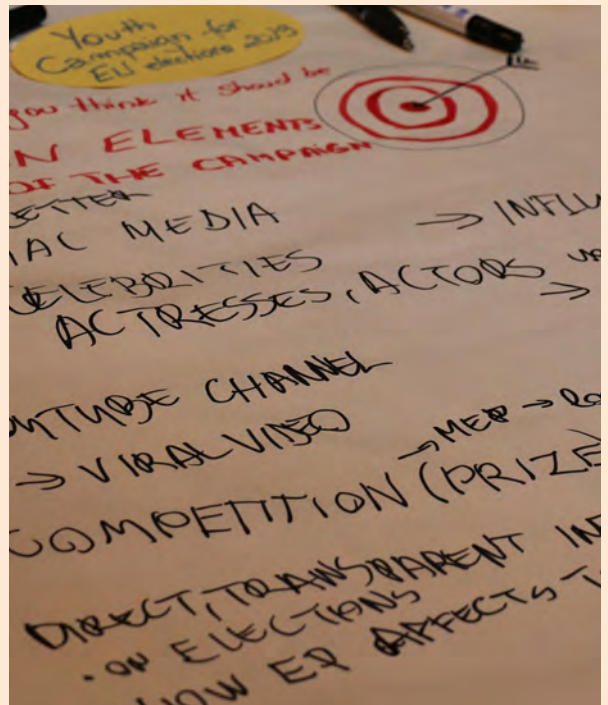 Youth
Campaign for
EU elections 2019
you think it should be
N ELEMENTS
OF THE CAMPAIGN
ETTER
IAL MEDIA → INFLU
CELEBRITIES
ACTRESSES, ACTORS
→
OUTUBE CHANNEL
→ VIRAL VIDEO
→ MEP →
COMPETITION (PRIZE
DIRECT, TRANSPARENT IN
• ON ELECTIONS
HOW EP AFFECTS T